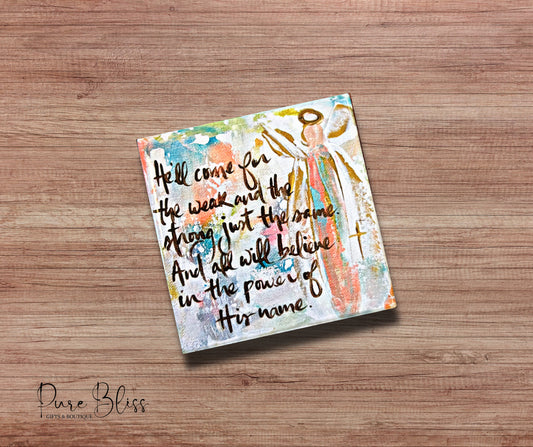 He'll come for
the weak and the
strong just the same.
And all will believe
in the power of
His name.
Pure Bliss
GIFTS & BOUTIQUE